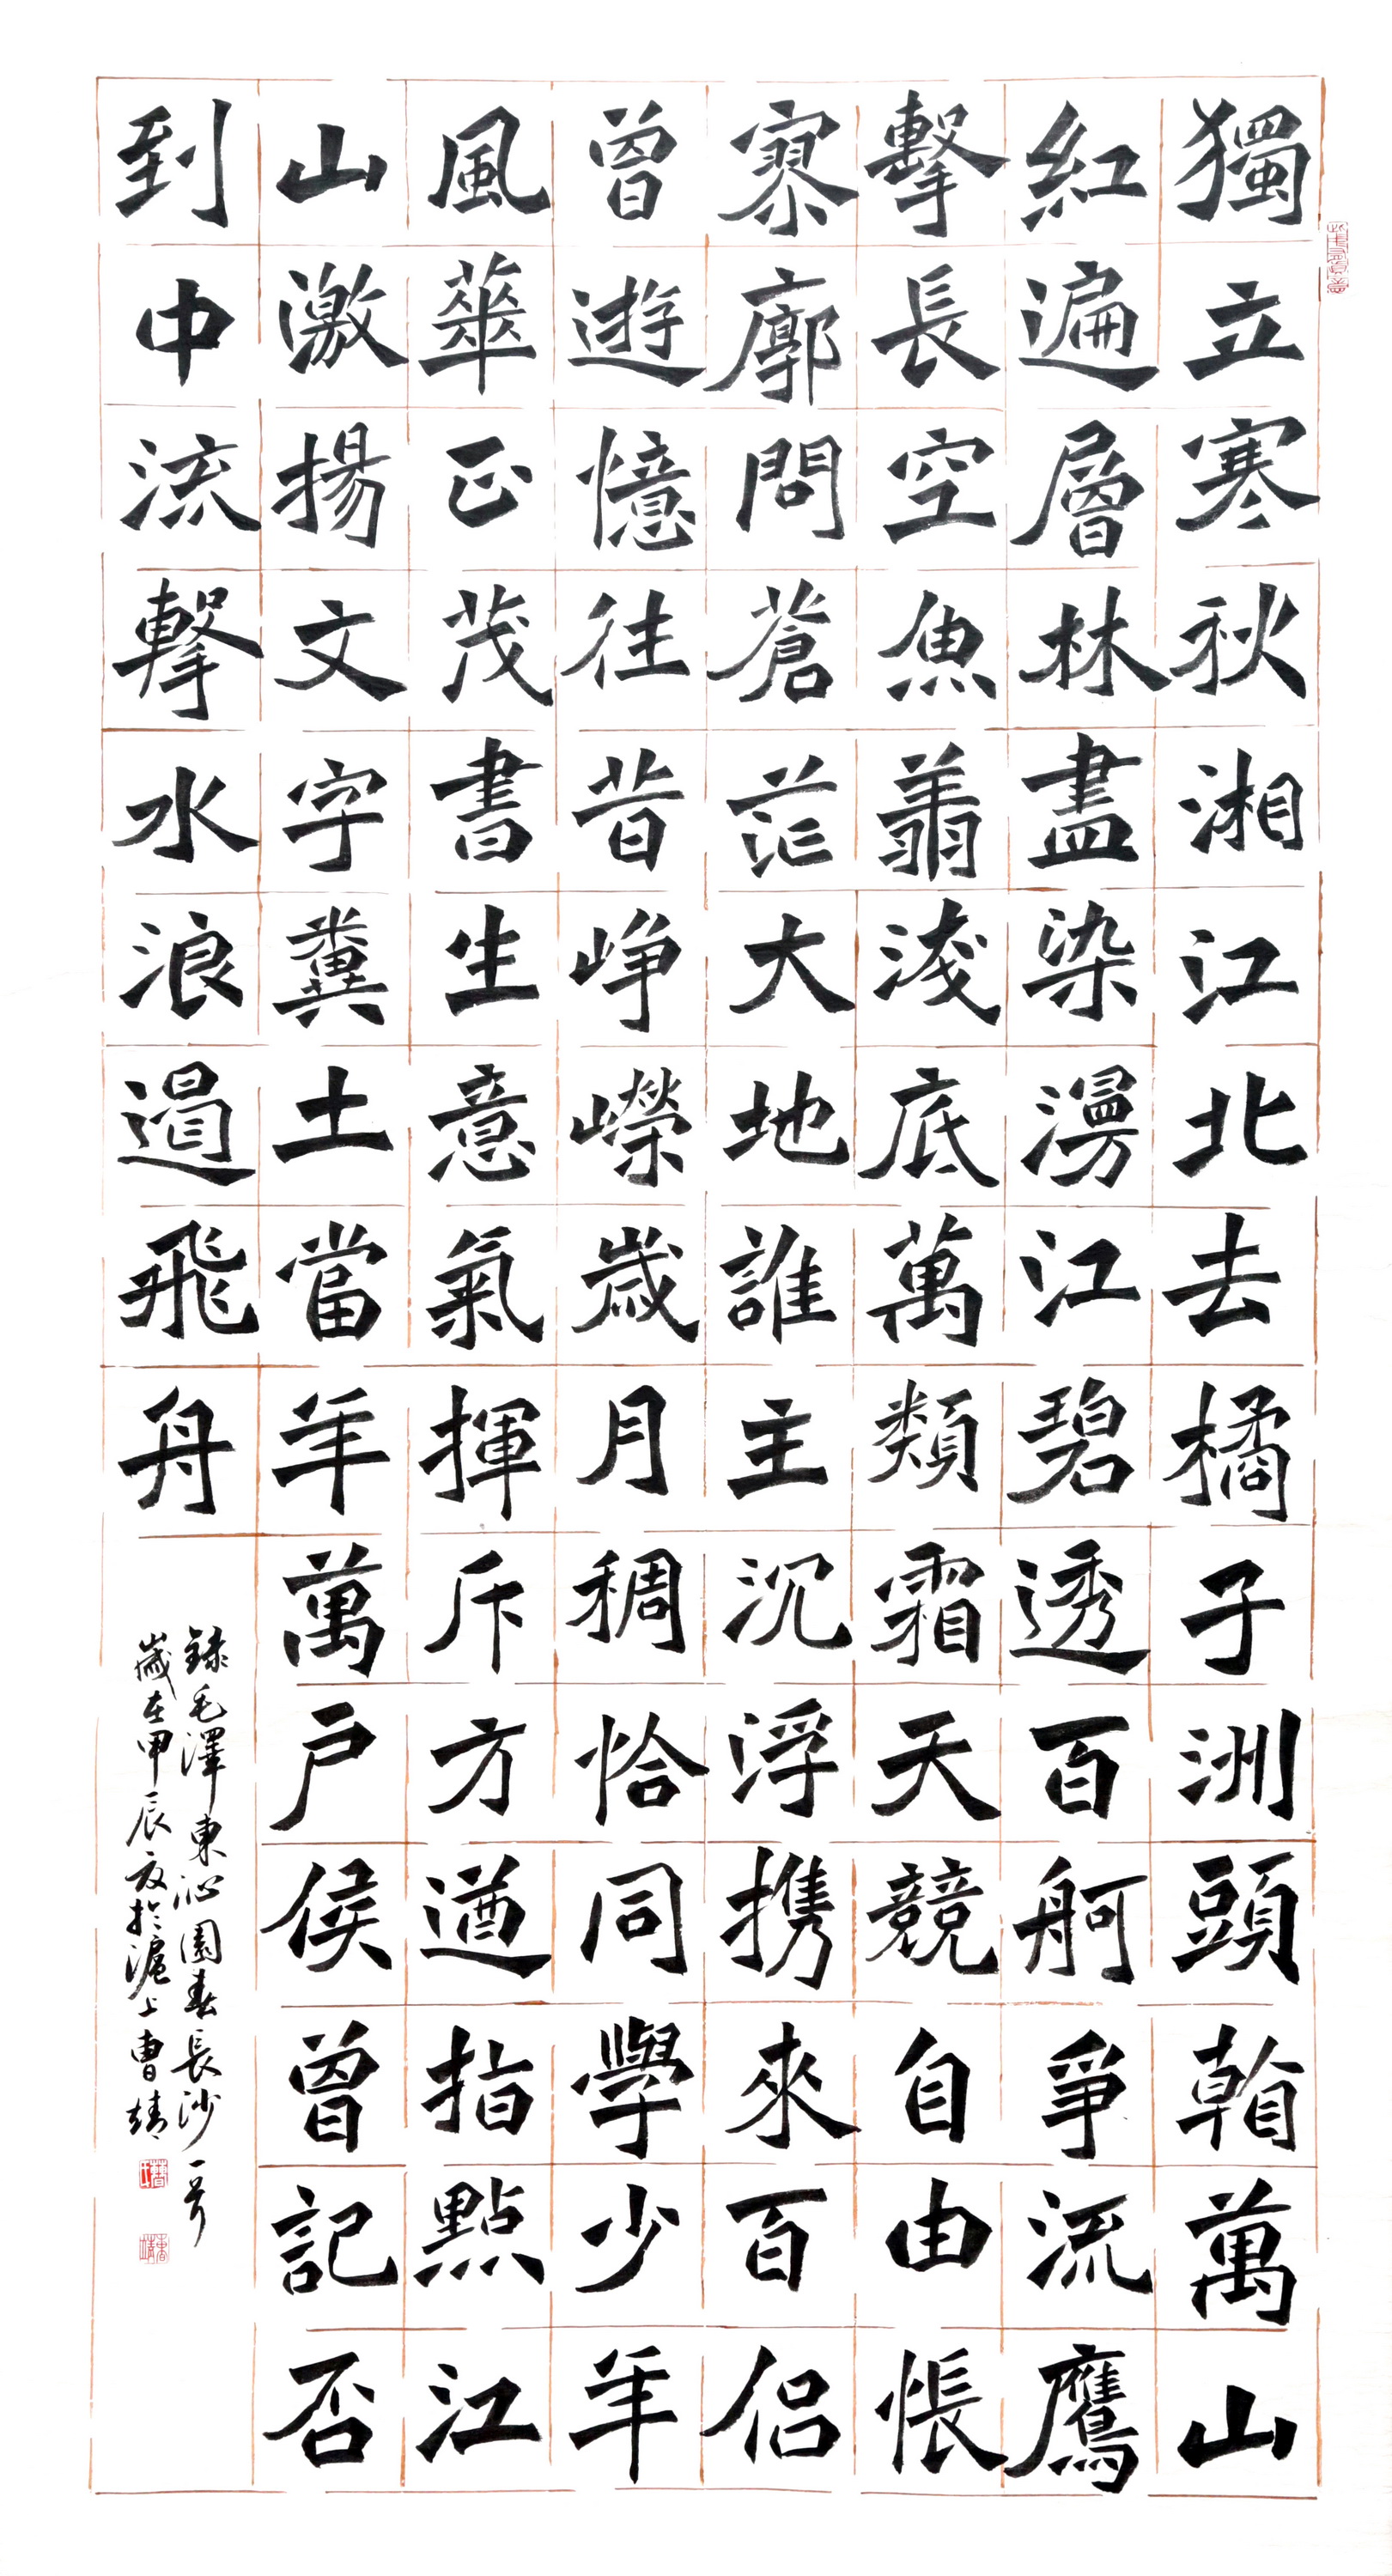 獨立寒秋湘江北去橘子洲頭看萬山
紅遍層林盡染漫江碧透百舸爭流鷹
擊長空魚翔淺底萬類霜天競自由悵
寥廓問蒼茫大地誰主沉浮携來百侣
曾遊憶往昔崢嶸歲月稠恰同學少年
風華正茂書生意氣揮斥方遒指點江
山激揚文字糞土當年萬户侯曾記否
到中流擊水浪遏飛舟
錄毛澤東沁園春長沙一首
歲在甲辰夏於滬上曹靖